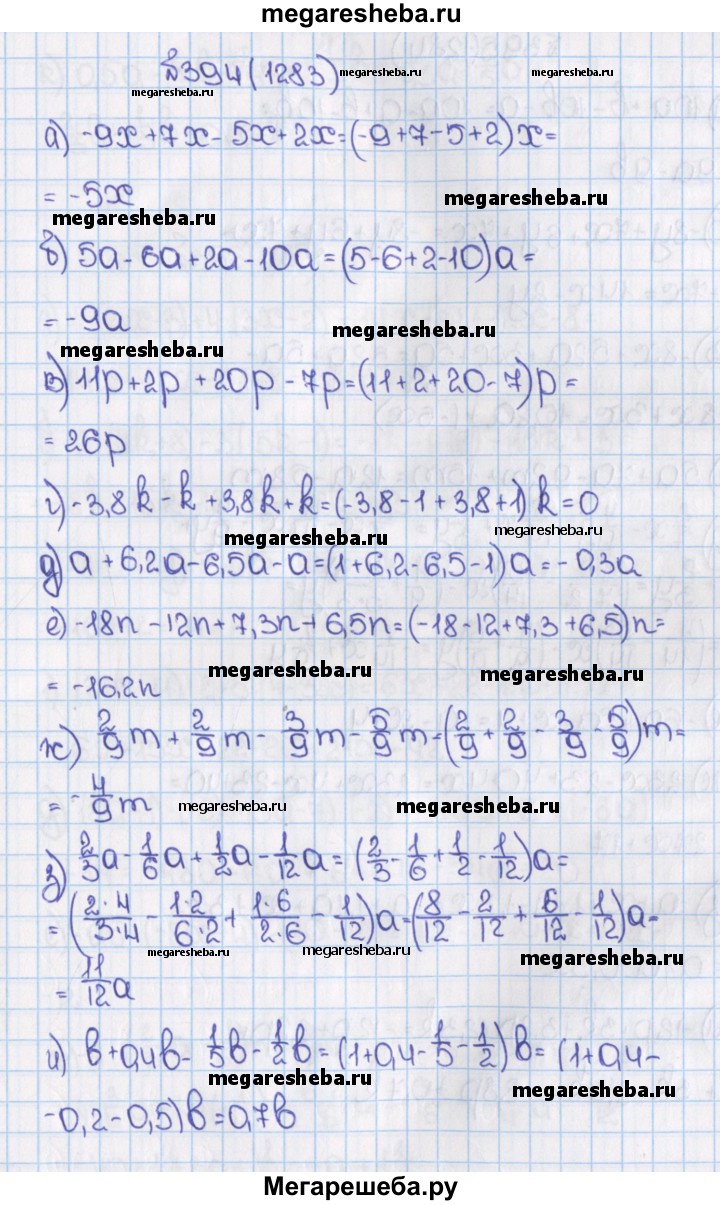 megaresheba.ru
№394(1283) megaresheba.ru megaresheba.ru
megaresheba.ru
а) -9x+7x-5x+2x=(-9+7-5+2)x=
= -5x megaresheba.ru
megaresheba.ru
б) 5a-6a+2a-10a=(5-6+2-10)a=
= -9a megaresheba.ru
megaresheba.ru
в) 11p+2p+20p-7p=(11+2+20-7)p=
= 26p
г) -3,8k-k+3,8k+k=(-3,8-1+3,8+1)k=0
megaresheba.ru megaresheba.ru
д) a+6,2a-6,5a-a=(1+6,2-6,5-1)a=-0,3a
е) -18n-12n+7,3n+6,5n=(-18-12+7,3+6,5)n=
megaresheba.ru megaresheba.ru
= -16,2n
ж) 2/9m+2/9m-3/9m-5/9m=(2/9+2/9-3/9-5/9)m=
= -4/9m megaresheba.ru megaresheba.ru
з) 2/3a-1/6a+1/2a-1/12a=(2/3-1/6+1/2-1/12)a=
=(2·4/3·4-1·2/6·2+1·6/2·6-1/12)a=(8/12-2/12+6/12-1/12)a=
megaresheba.ru megaresheba.ru megaresheba.ru
= 11/12a
и) b+0,4b-1/5b-1/2b=(1+0,4-1/5-1/2)b=(1+0,4-
megaresheba.ru megaresheba.ru
-0,2-0,5)b=0,7b
Мегарешеба.ру